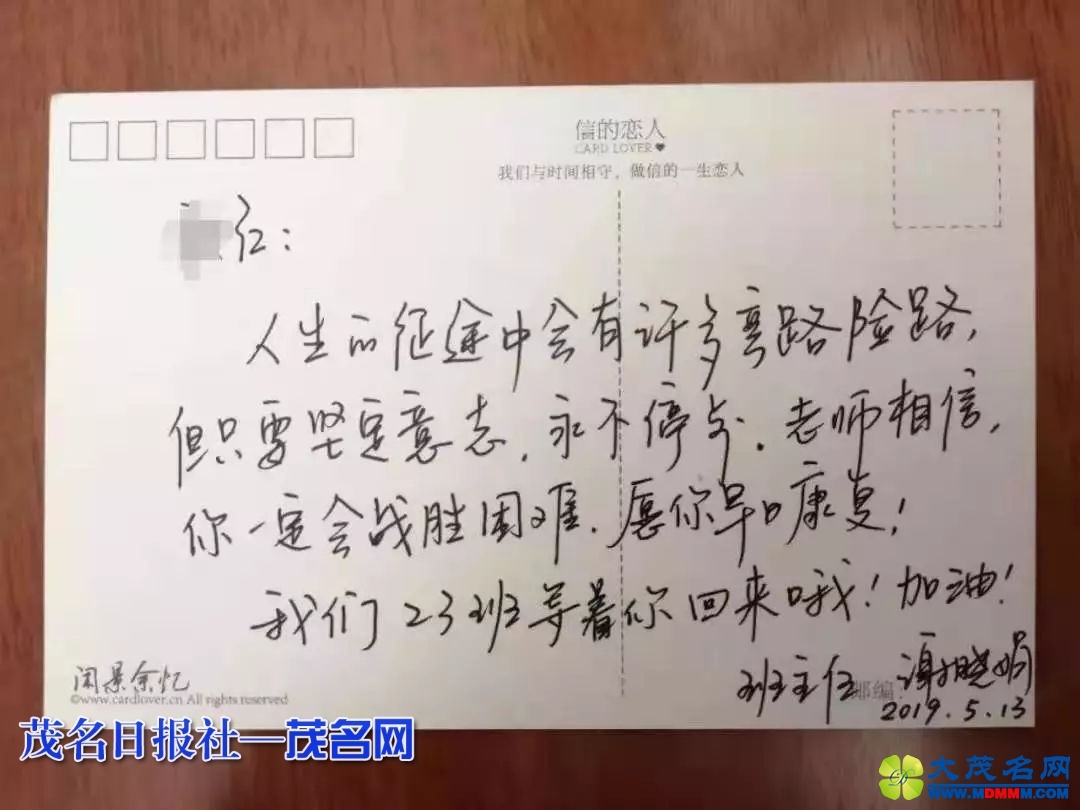 信的恋人
CARD LOVER
我们与时间相守，做信的一生恋人
红：
人生的征途中会有许多弯路险路，
但只要坚定意志，永不停步。老师相信，
你一定会战胜困难，愿你早日康复！
我们23班等着你回来哦！加油！
班主任 谢晓娟
邮编：
2019.5.13
闲景余忆
©www.cardlover.cn All rights reserved
茂名日报社—茂名网
大茂名网
WWW.MDMMM.COM